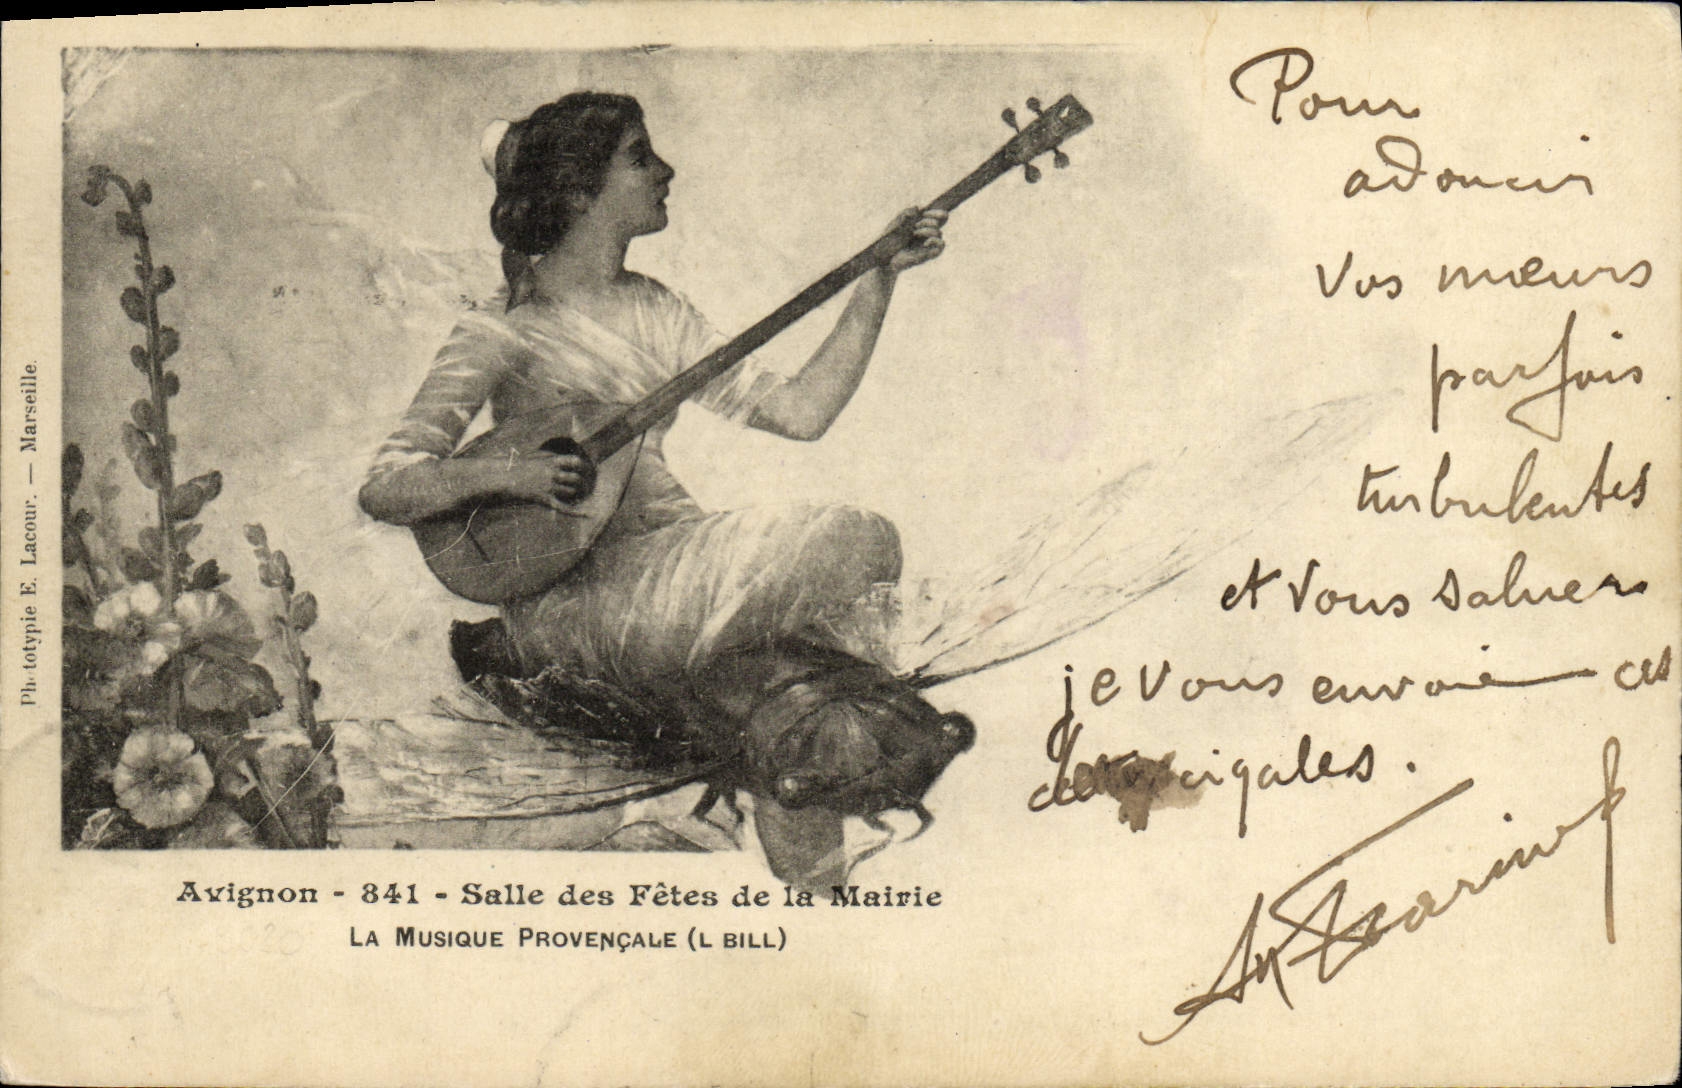 Phototypie E. Lacour. — Marseille.
Pour
adoucir
vos mœurs
parfois
turbulentes
et vous saluer
je vous envoie ces
cigales.
Avignon - 841 - Salle des Fêtes de la Mairie
LA MUSIQUE PROVENÇALE (L BILL)